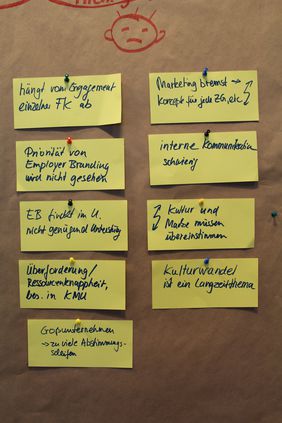 hängt vom Engagement
einzelner FK ab
Priorität von
Employer Branding
wird nicht gesehen
EB findet im U.
nicht genügend Unterstützg
Überforderung/
Ressourcenknappheit,
bes. in KMU
Großunternehmen
→ zu viele Abstimmungs-
schleifen
Marketing bremst →
Konzept für jede ZG, etc.
interne Kommunikation
schwierig
Kultur und
Marke müssen
übereinstimmen
Kulturwandel
ist ein Langzeitthema